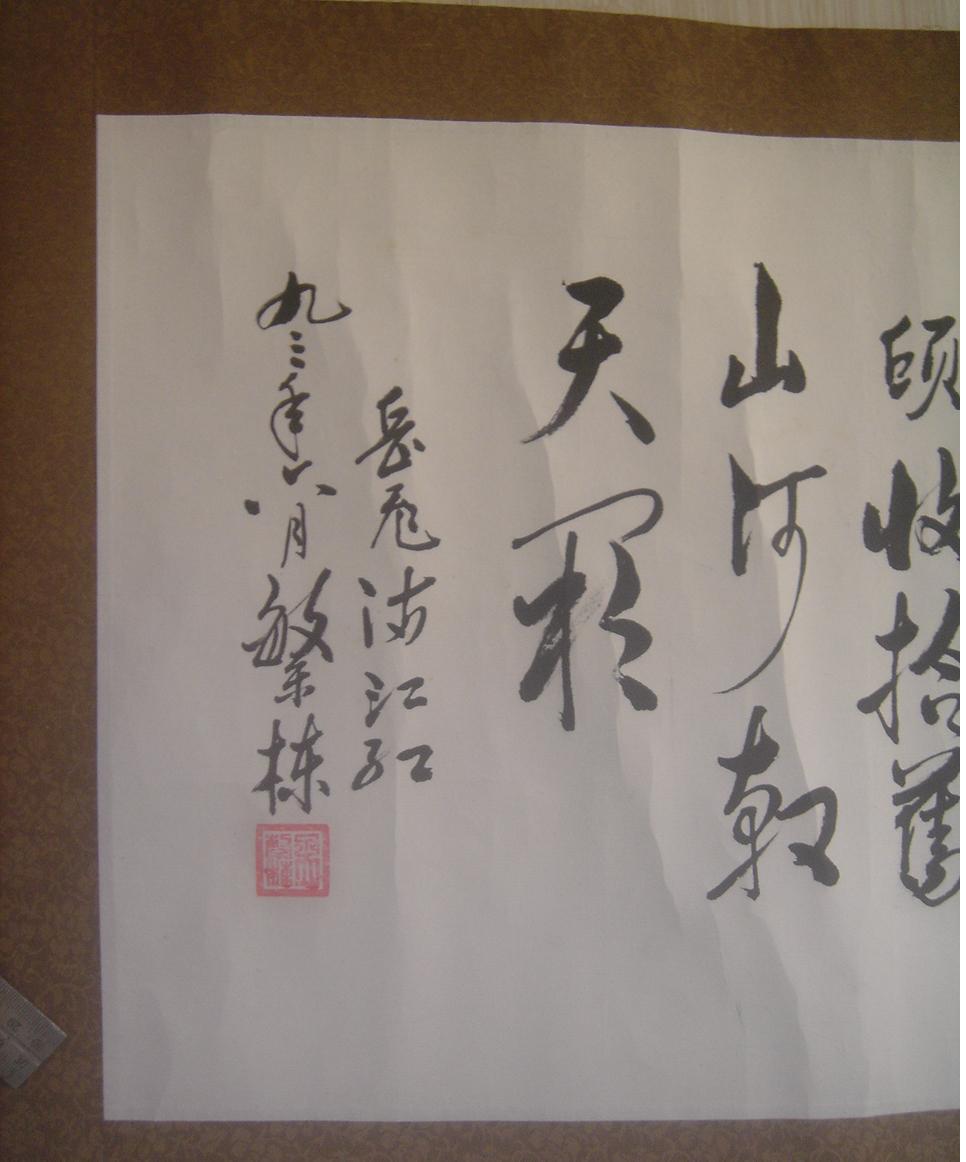 頭收拾舊
山河朝
天闕
岳飛滿江紅
九三年六月繁棟